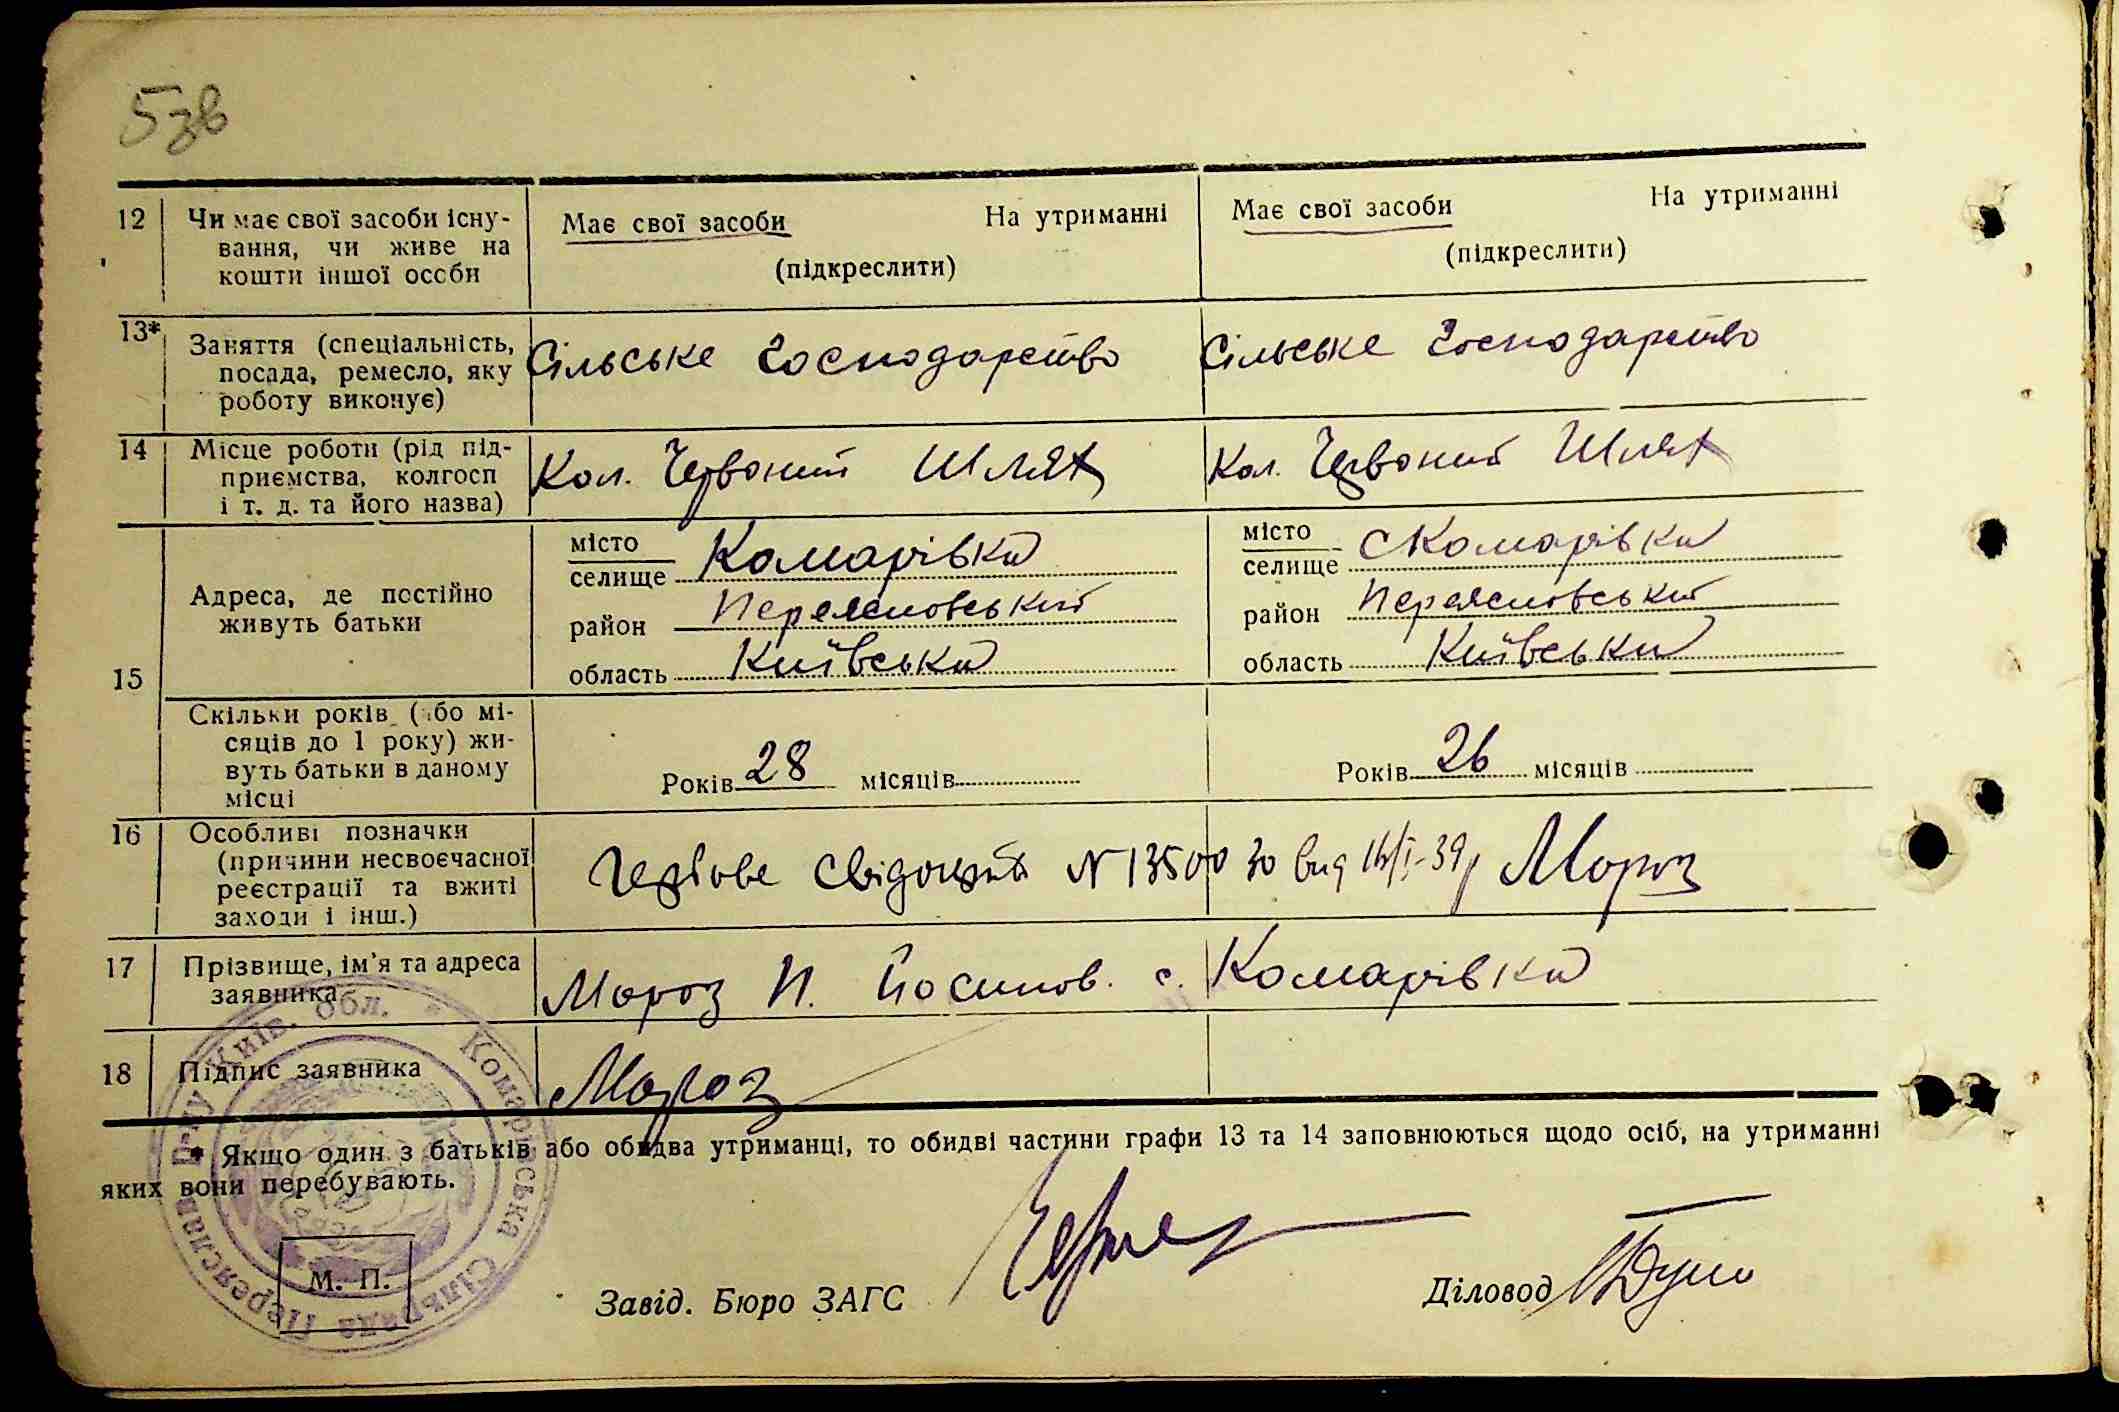 5зв
12 Чи має свої засоби існу- Має свої засоби На утриманні Має свої засоби На утриманні
вання, чи живе на (підкреслити) (підкреслити)
кошти іншої особи
13* Заняття (спеціальність, Сільське Господарство Сільське Господарство
посада, ремесло, яку
роботу виконує)
14 Місце роботи (рід під- Кол. Червоний Шлях Кол. Червоний Шлях
приємства, колгосп
і т. д. та його назва)
15 Адреса, де постійно
живуть батьки
місто селище Комарівка місто селище с Комарівка
район Переяславський район Переяславський
область Київська область Київська
Скільки років (або мі-
сяців до 1 року) жи-
вуть батьки в даному
місці
Років 28 місяців Років 26 місяців
16 Особливі позначки
(причини несвоєчасної
реєстрації та вжиті
заходи і інш.)
Гербове свідоцтв N 13500 30 вид 16/I-39р Мороз
17 Прізвище, ім'я та адреса
заявника
Мороз П. Йосипов. с. Комарівка
18 Підпис заявника Мороз
* Якщо один з батьків або обидва утриманці, то обидві частини графи 13 та 14 заповнюються щодо осіб, на утриманні
яких вони перебувають.
Комарівська Сільрада Переяслав Р-ну Київ. Обл.
М. П.
Завід. Бюро ЗАГС Діловод